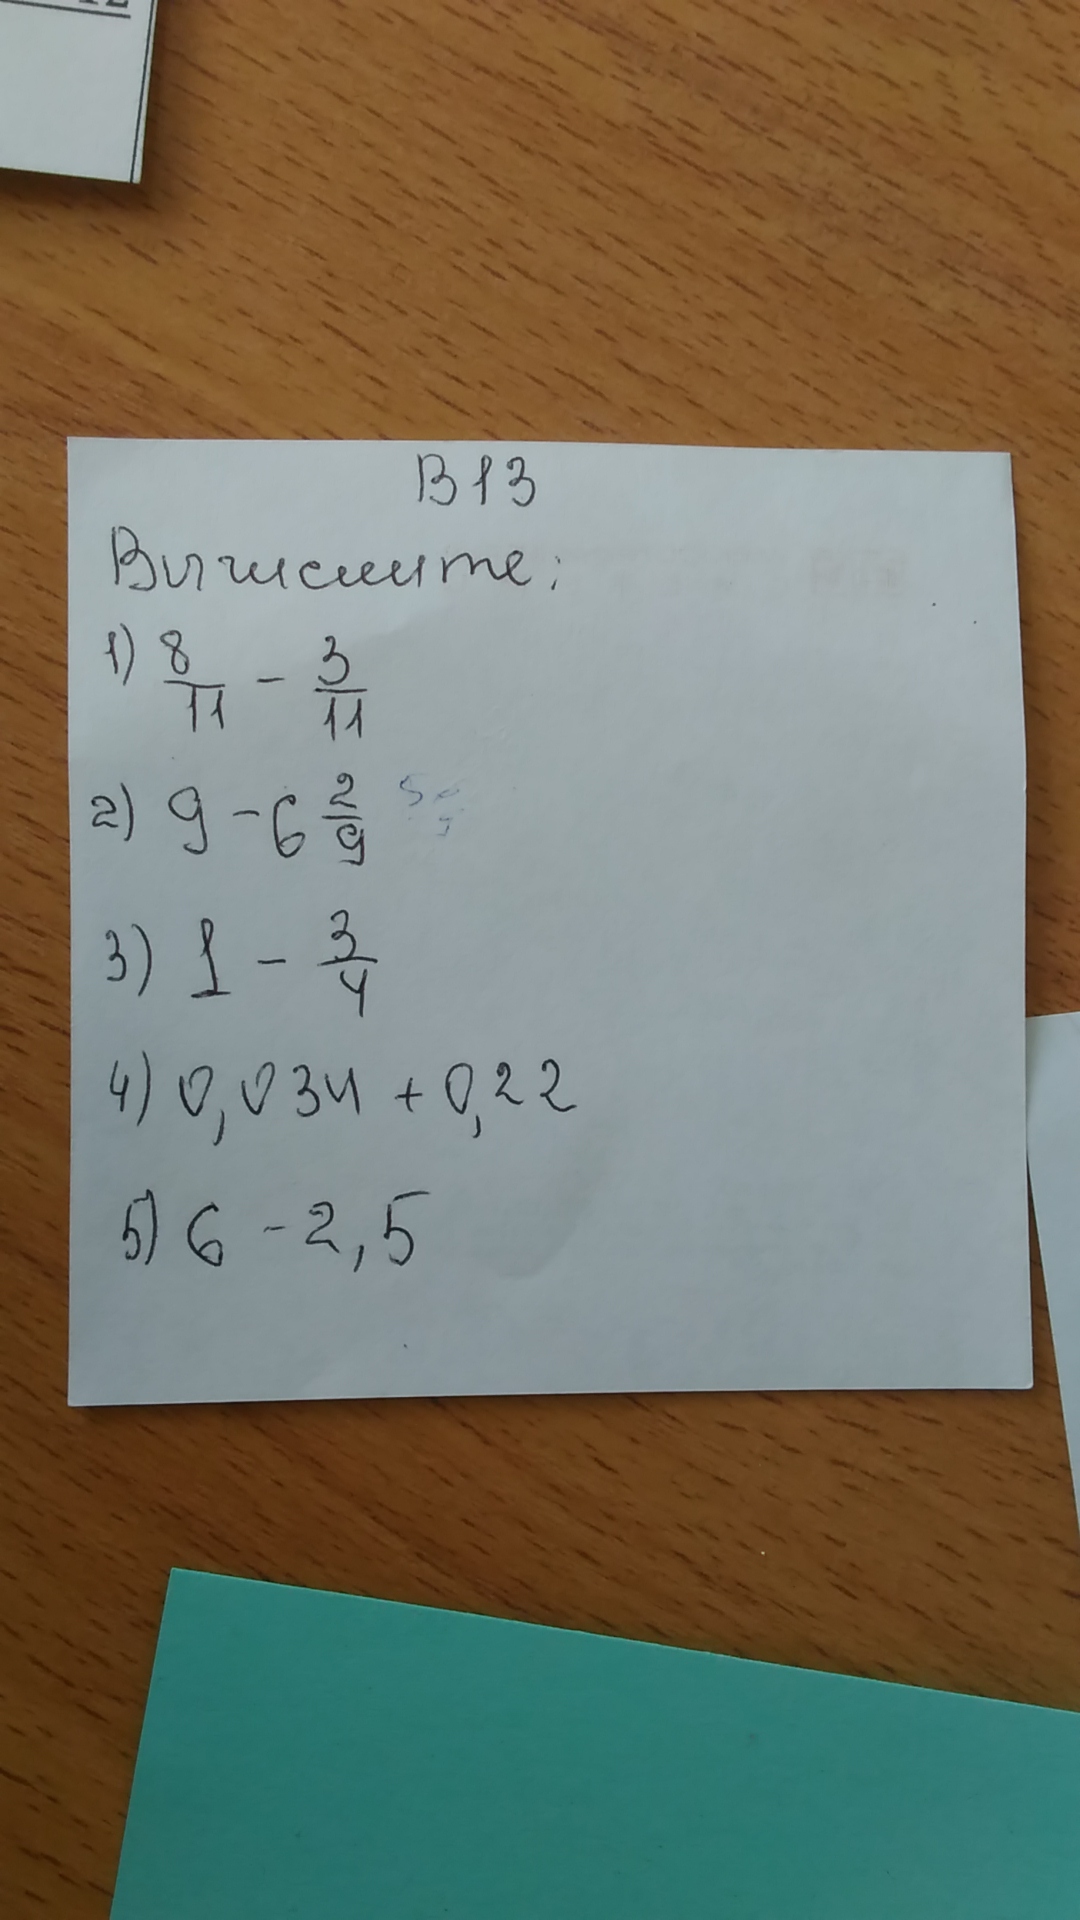 В13
Вычислите:
1) 8/11 - 3/11
2) 9 - 6 2/9
3) 1 - 3/4
4) 0,034 + 0,22
5) 6 - 2,5